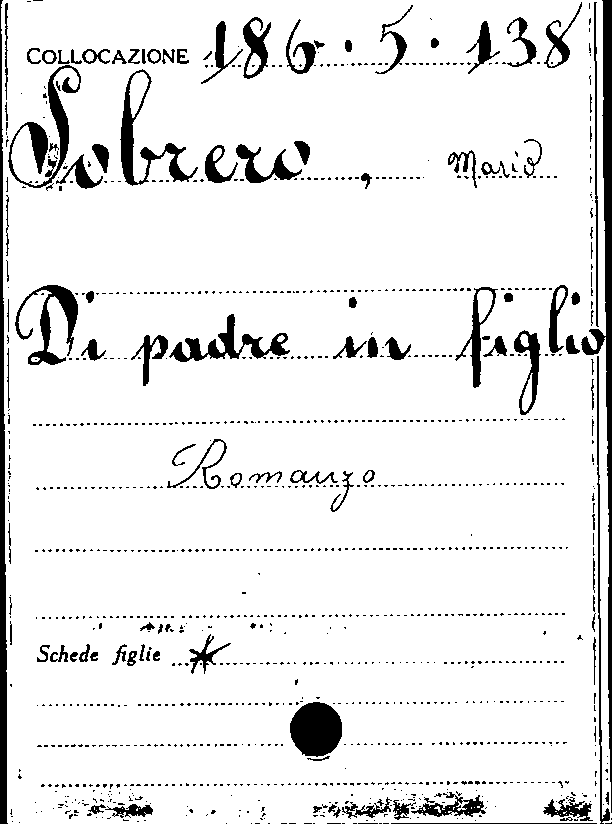 COLLOCAZIONE 186 · 5 · 138
Sobrero, Mario
Di padre in figlio
Romanzo
Schede figlie *